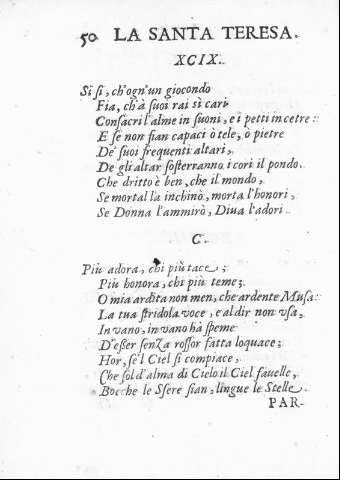 50 LA SANTA TERESA.
XCIX.
Si si, ch'ogn'un giocondo
Fia, ch'à suoi rai sì cari
Consacri l'alme in suoni, e i petti in cetre:
E se non sian capaci ò tele, ò pietre
De' suoi frequenti altari,
De gli altar sosterranno i cori il pondo.
Che dritto è ben, che il mondo,
Se mortal la inchinò, morta l'honori,
Se Donna l'ammirò, Diua l'adori.
C.
Più adora, chi più tace;
Più honora, chi più teme;
O mia ardita non men, che ardente Musa:
La tua stridola voce, e al dir non vsa,
In vano, in vano hà speme
D'esser senza rossor fatta loquace;
Hor, se'l Ciel si compiace,
Che sol d'alma di Cielo il Ciel fauelle,
Bocche le Sfere sian, lingue le Stelle.
PAR-